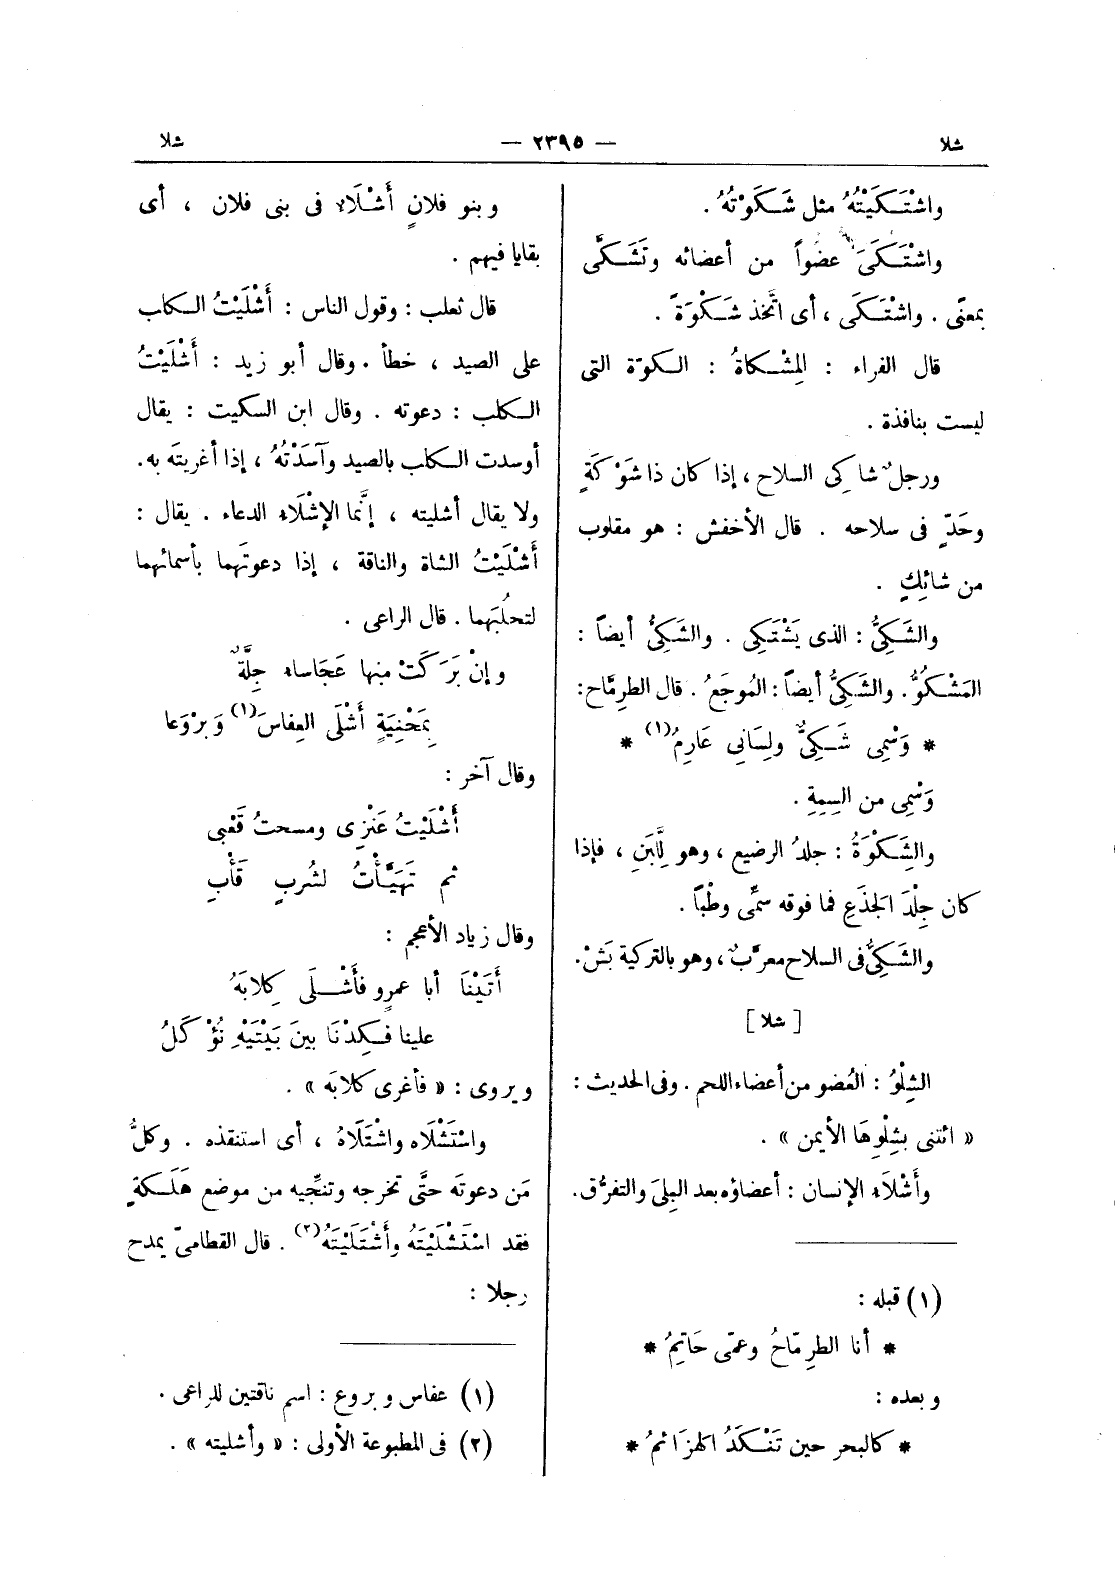 شلا
— ٢٣٩٥ —
شلا
واشْتَـكَيْتُهُ مثل شَـكَوْتهُ .
واشْتَـكَىَ عضُواً من أعضائه وتَشَـكَّى
بمعنًى . واشْتَـكَى ، أى اتَّخذ شَـكْوَةً .
قال الفراء : المِشْـكاةُ : الـكوّة التى
ليست بنافذة .
ورجلٌ شاكِى السلاح ، إذا كان ذا شَوْكَةٍ
وحَدٍّ فى سلاحه . قال الأخفش : هو مقلوب
من شائِكٍ .
والشَـكِىُّ : الذى يَشْتَـكِى . والشَـكِىُّ أيضاً :
المَشْـكُوُّ . والشَـكِىُّ أيضاً : المُوجَعُ . قال الطرِمّاح :
* وَسْمِى شَـكِىٌّ ولِسَانِى عَارِمُ (١) *
وَسْمِى من السِمِةِ .
والشَـِكْوَةُ : جلدُ الرضيع ، وهو لِلَّبَنِ ، فإذا
كان جِلْدَ الجَذَعِ فما فوقه سمِّى وطْباً .
والشَـكِىُّ فى السلاح معرَّبٌ ، وهو بالتركية بَشْ .
[ شلا ]
الشِلْوُ : العُضو من أعضاء اللحم . وفى الحديث :
« ائتنى بشِلْوِهَا الأيمن » .
وأَشْلَاء الإنسان : أعضاؤه بعد البِلَى والتفرُّق .
(١) قبله :
* أنا الطرِمّاحُ وعمّى حَاتِمُ *
وبعده :
* كالبحر حين تَنْـكَدُ الهزَائمُ *
وبنو فلانٍ أَشْلَاء فى بنى فلان ، أى
بقايا فيهم .
قال ثعلب : وقول الناس : أَشْلَيْتُ الـكلب
على الصيد ، خطأ . وقال أبو زيد : أَشْلَيْتُ
الـكلب : دعوته . وقال ابن السكيت : يقال
أوسدت الـكلب بالصيد وآسَدْتُهُ ، إذا أغريتَه به .
ولا يقال أشليته ، إنَّما الإشْلَاء الدعاء . يقال :
أَشْلَيْتُ الشاة والناقة ، إذا دعوتَهما بأسمائهما
لتحلُبَهما . قال الراعى .
وإنْ بَرَكَتْ منها عَجَاساء جِلَّةٌ
بِمَحْنِيَةٍ أَشْلَى العِفاسَ (١) وَبرْوَعا
وقال آخر :
أَشْلَيْتُ عَنْزِى ومسحتُ قَعْبى
ثم تَهَيَّأْتُ لشُربٍ قَأْبِ
وقال زياد الأعجم :
أَتَيْنَا أبا عمرٍو فأَشْـلَى كِلابَهُ
علينا فـكِدْنَا بينَ بَيْتَيْهِ نُؤْكَلُ
ويروى : « فأغرى كلابَه » .
واسْتَشْلَاه واشْتَلَاهُ ، أى استنقذه . وكلُّ
مَن دعوتَه حتَّى تخرجه وتنجِّيه من موضع هَلَـكةٍ
فقد اسْتَشْلَيْتَهُ وأَشْتَلَيْتَهُ (٢) . قال القطامىّ يمدح
رجلا :
(١) عفاس وبروع : اسم ناقتين للراعى .
(٢) فى المطبوعة الأولى : « وأشليته » .